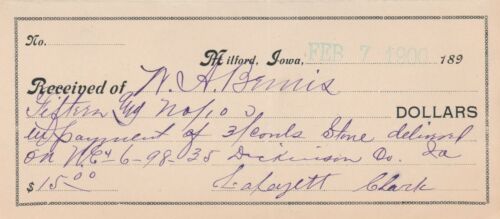 No.
Milford, Iowa, FEB 7 1900 189
Received of W. A. Bemis
Fifteen and No/100 DOLLARS
in payment of 3/cords Stone delivered
on NE 4-6-98-35 Dickinson Co. Ia
$15.00 Lafayett Clark